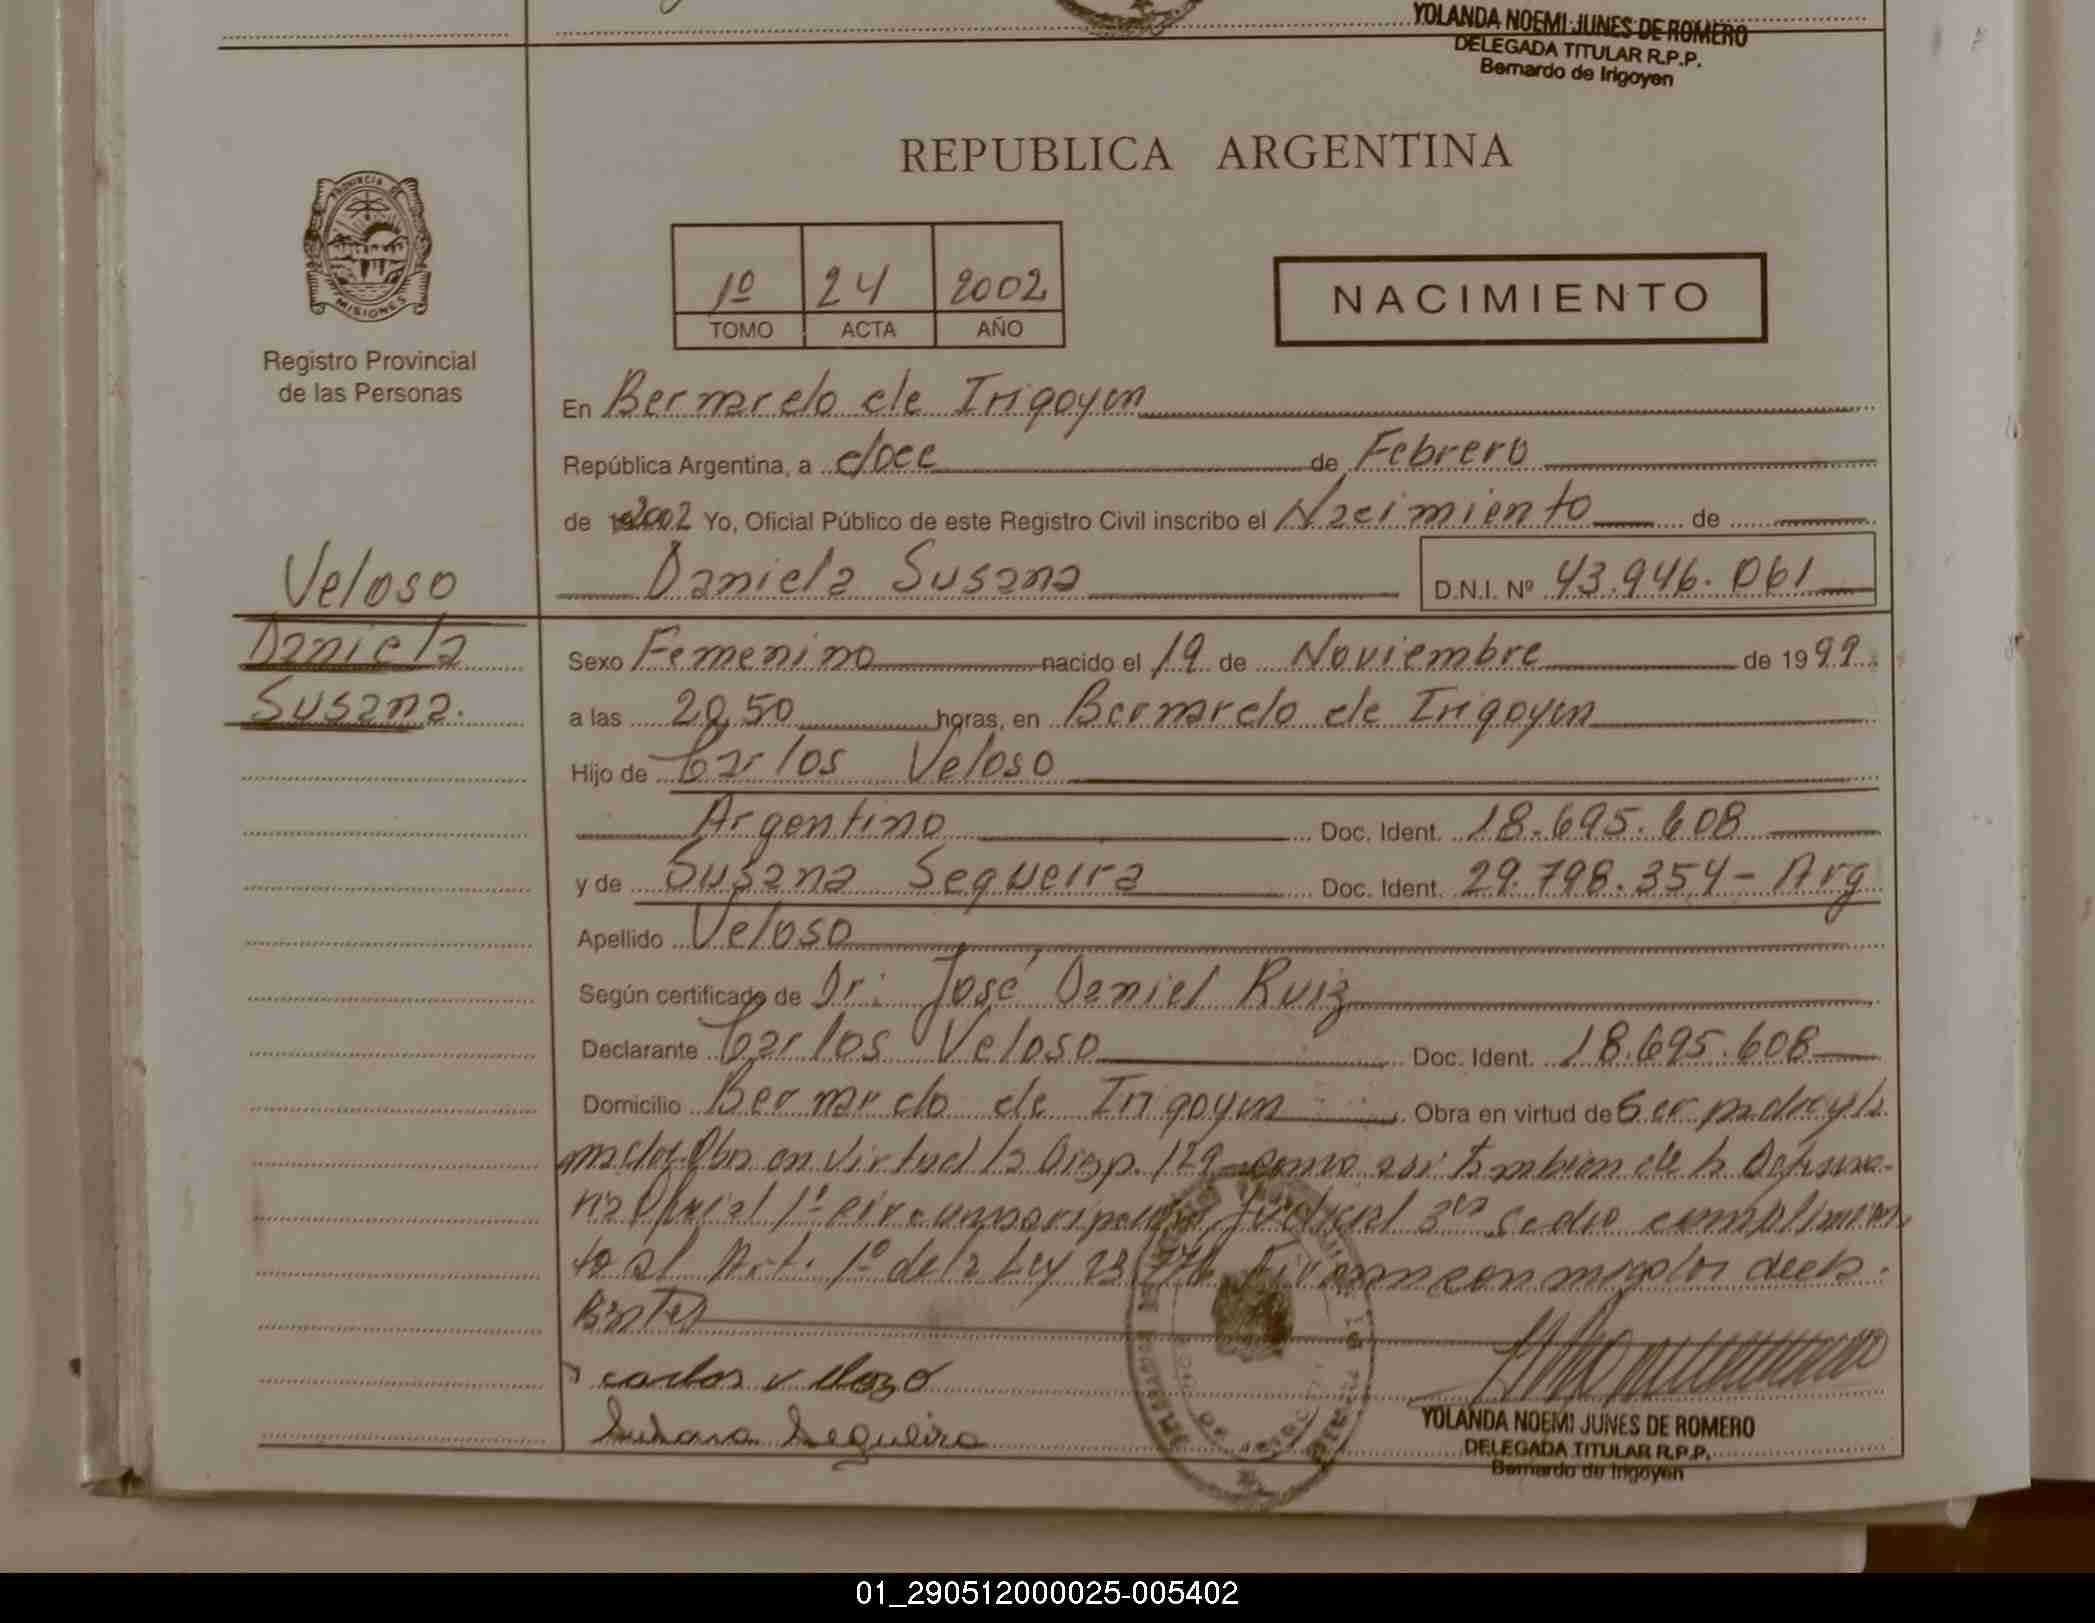 YOLANDA NOEMI JUNES DE ROMERO
DELEGADA TITULAR R.P.P.
Bernardo de Irigoyen
REPUBLICA ARGENTINA
PROVINCIA DE
MISIONES
Registro Provincial
de las Personas
1º 24 2002
TOMO ACTA AÑO
NACIMIENTO
En Bernardo de Irigoyen
República Argentina, a doce de Febrero
de 2002 Yo, Oficial Público de este Registro Civil inscribo el Nacimiento de
Veloso
Daniela Susana D.N.I. Nº 43.946.061
Daniela
Sexo Femenino nacido el 19 de Noviembre de 1999
Susana.
a las 20,50 horas, en Bernardo de Irigoyen
Hijo de Carlos Veloso
Argentino Doc. Ident. 18.695.608
y de Susana Sequeira Doc. Ident. 29.798.354 - Arg
Apellido Veloso
Según certificado de Dr: José Daniel Ruiz
Declarante Carlos Veloso Doc. Ident. 18.695.608
Domicilio Bernardo de Irigoyen Obra en virtud de Ser padre y la
madre. Obra en virtud la Disp. 129 como asi tambien de la
1º circunscripcion Judicial
to al Art. 1º de la Ley Firman con migo los decla-
rantes
carlos velozo
Susana Sequeira
YOLANDA NOEMI JUNES DE ROMERO
DELEGADA TITULAR R.P.P.
Bernardo de Irigoyen
01_290512000025-005402